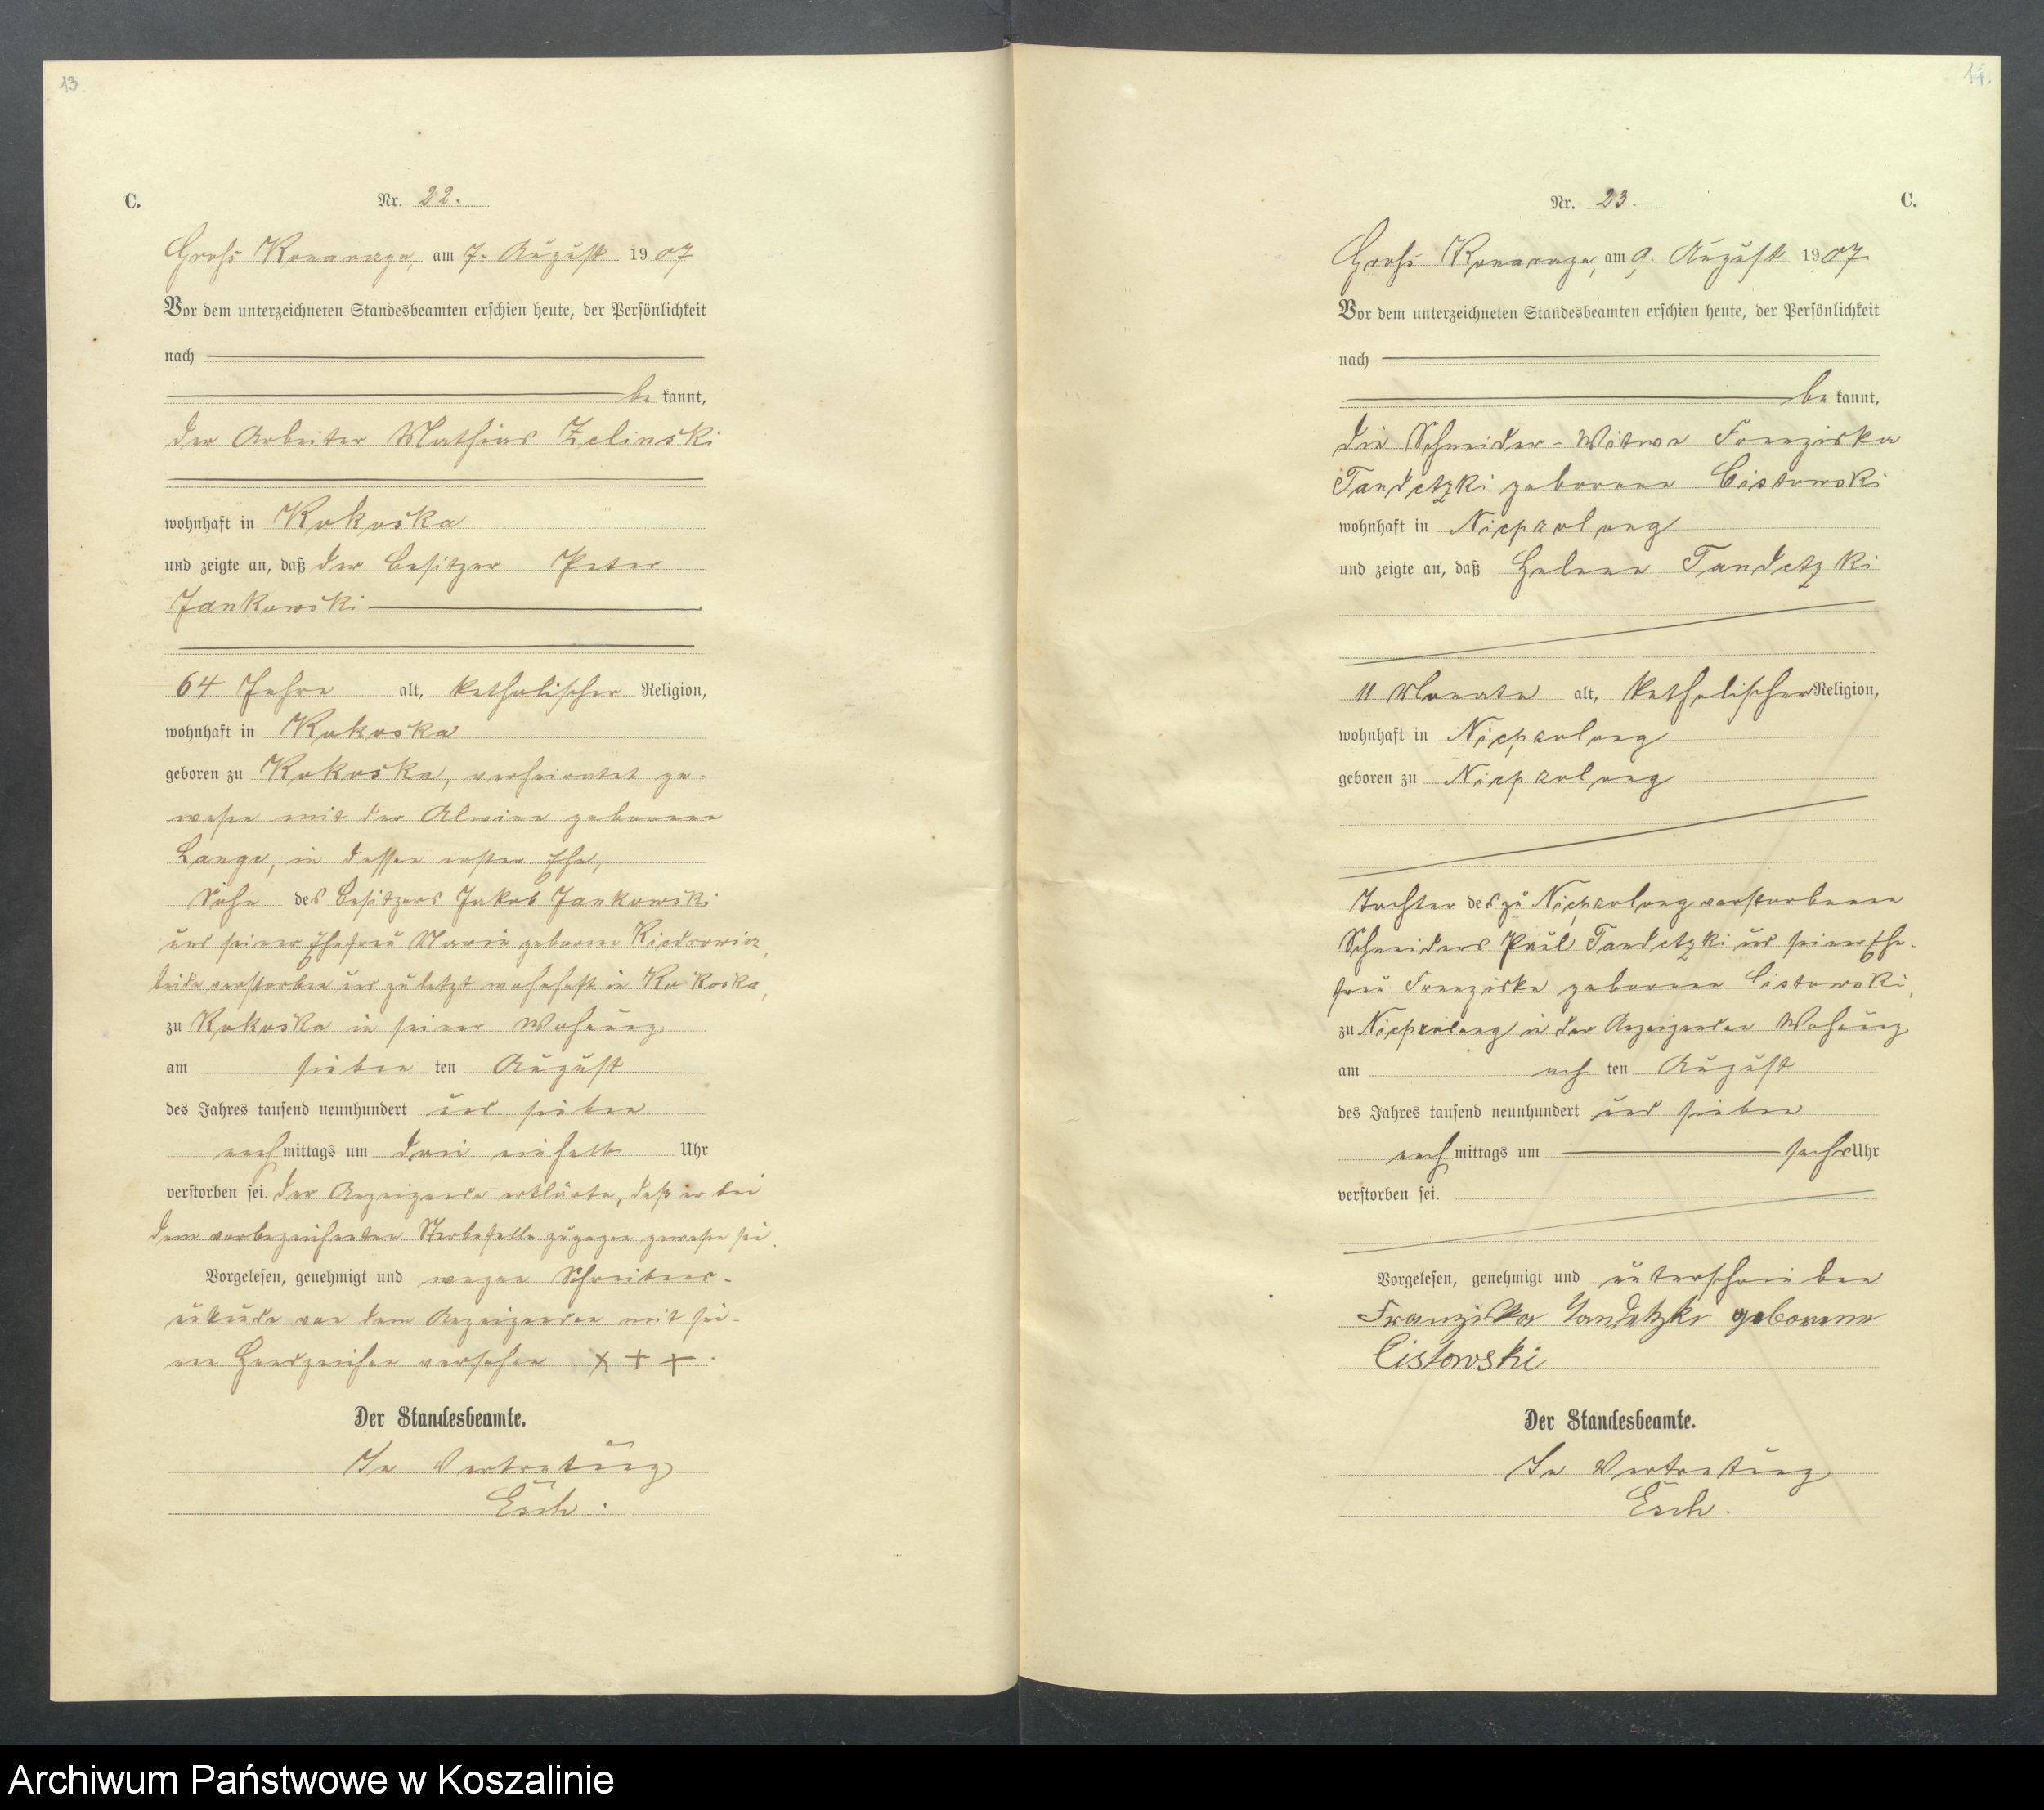 13
C.
Nr. 22.
Groß Konarczyn, am 7. August 1907
Vor dem unterzeichneten Standesbeamten erschien heute, der Persönlichkeit
nach
be kannt,
der Arbeiter Mathias Zelinski
wohnhaft in Kokoska
und zeigte an, daß der Besitzer Peter
Jankowski
64 Jahre alt, katholischer Religion,
wohnhaft in Kokoska
geboren zu Kokoska, verheiratet ge-
wesen mit der Alwine geborene
Lange, in dessen erster Ehe,
Sohn des Besitzers Jakob Jankowski
und seiner Ehefrau Marie geborene Kiedrowicz,
beide verstorben und zuletzt wohnhaft in Kokoska,
zu Kokoska in seiner Wohnung
am sieben ten August
des Jahres tausend neunhundert und sieben
nach mittags um drei einhalb Uhr
verstorben sei. Der Anzeigende erklärte, daß er bei
dem vorbezeichneten Sterbefalle zugegen gewesen sei.
Vorgelesen, genehmigt und wegen Schreibens-
unkunde von dem Anzeigenden mit sei-
nen Handzeichen versehen + + +.
Der Standesbeamte.
In Vertretung
Esch.
14.
Nr. 23.
C.
Groß Konarczyn, am 9. August 1907
Vor dem unterzeichneten Standesbeamten erschien heute, der Persönlichkeit
nach
be kannt,
die Schneider-Witwe Franziska
Tandetzki geborene Cistowski
wohnhaft in
und zeigte an, daß Helene Tandetzki
11 Monate alt, katholischer Religion,
wohnhaft in
geboren zu
Tochter des zu verstorbenen
Schneiders Paul Tandetzki und seiner Ehe-
frau Franziska geborene Cistowski,
zu in der Anzeigenden Wohnung
am ach ten August
des Jahres tausend neunhundert und sieben
nach mittags um sechs Uhr
verstorben sei.
Vorgelesen, genehmigt und unterschrieben
Franziska Tandetzki geborene
Cistowski
Der Standesbeamte.
In Vertretung
Esch.
Archiwum Państwowe w Koszalinie